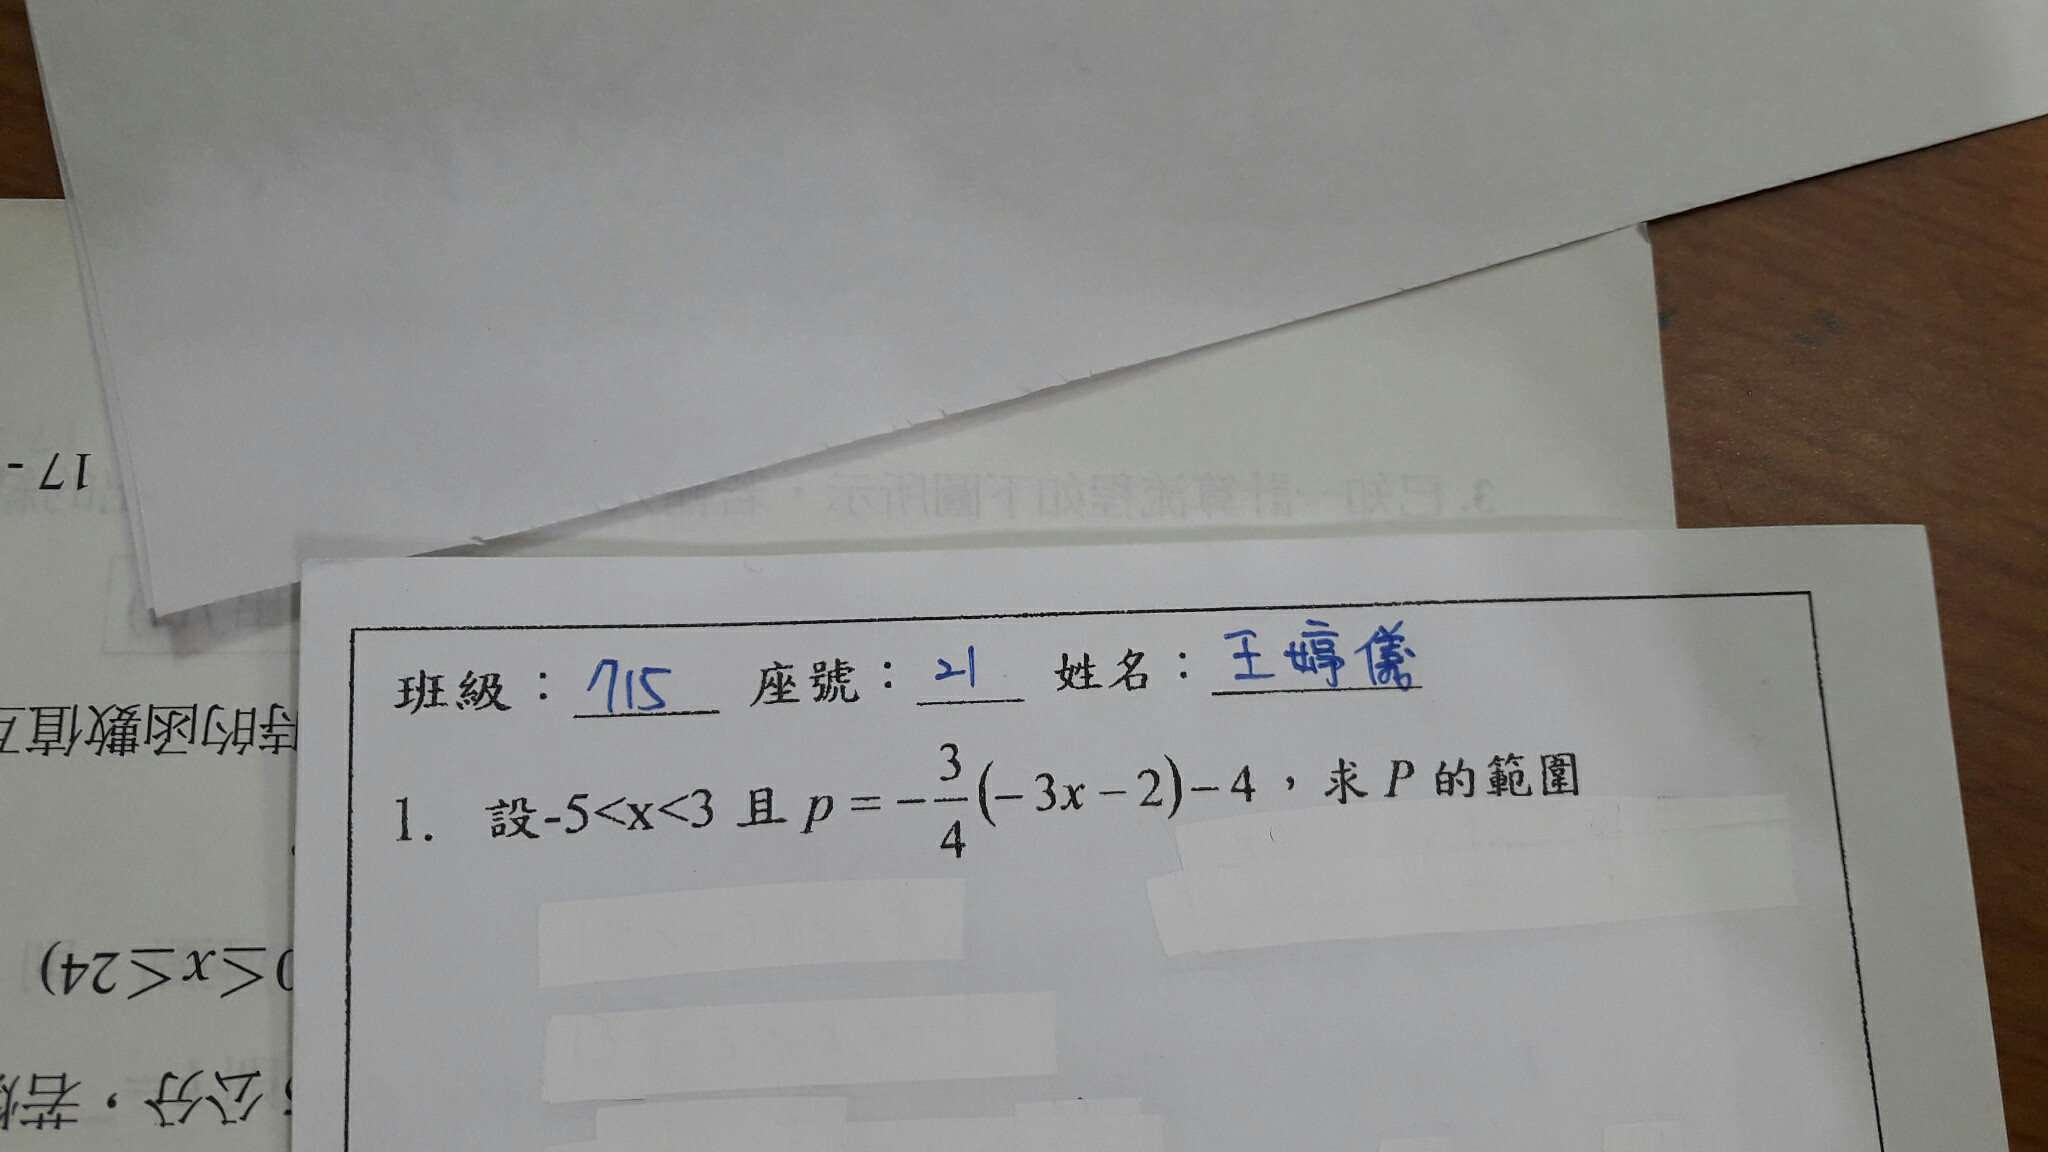 3. 已知一計算流程如下圖所示，若輸
17 -
班級：715 座號：21 姓名：王婷儀
1. 設-5<x<3 且 p = -3/4(-3x-2)-4，求 P 的範圍
時的函數值互
0≤x≤24)
公分，若